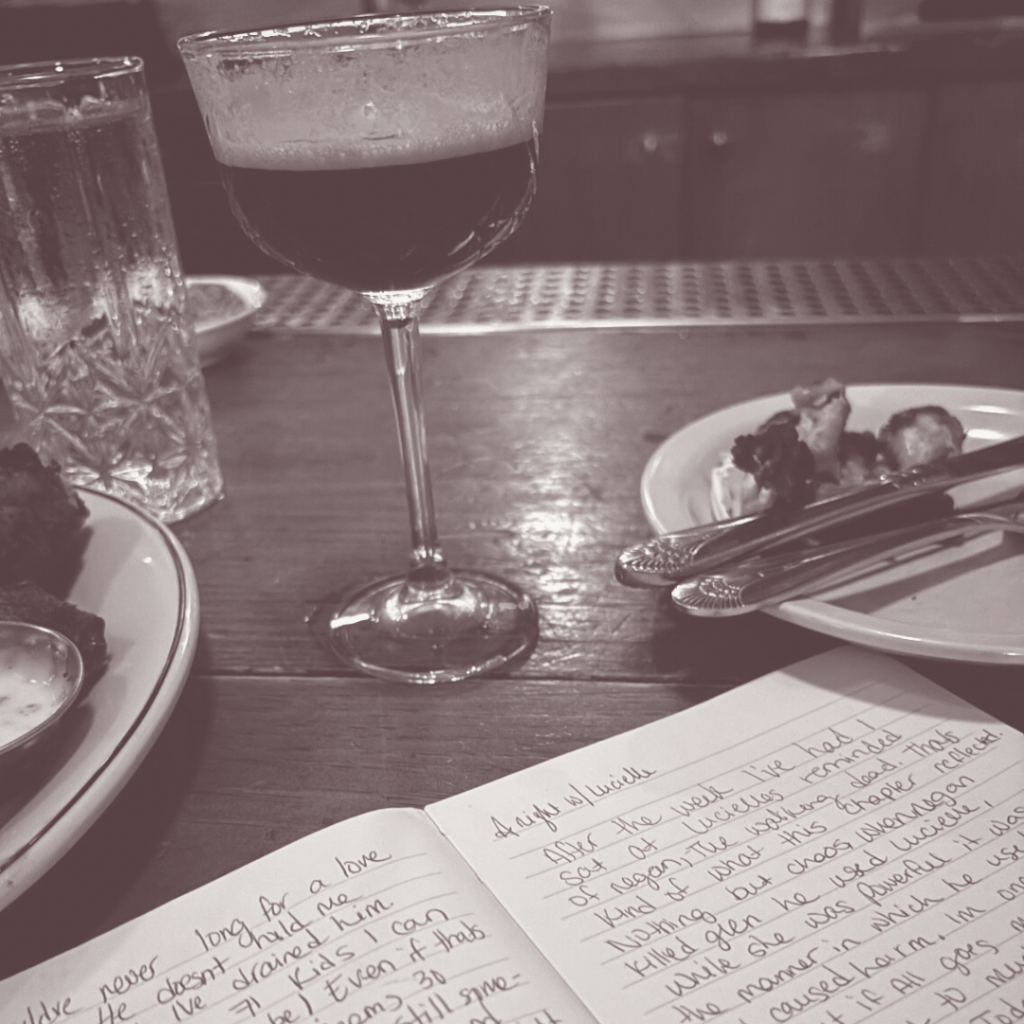 long for a love
uldve never hold me
He doesnt
I've drained him
71 Kids I can
be) Even if thats
ooms 30
still some-
A night w/Lucielle
After the week I've had I
sat at Lucielles reminded
of negan, The walking dead. thats
Kind of what this chapter reflected.
Nothing but choas when negan
killed glen he used Lucielle,
while she was powerful it was
the manner in which he use
caused harm, im on
if All goes
to mu
Tod